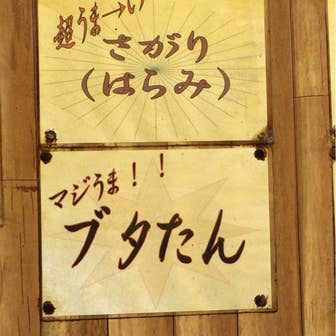 超うま→い
さがり
(はらみ)
マジうま!!
ブタたん